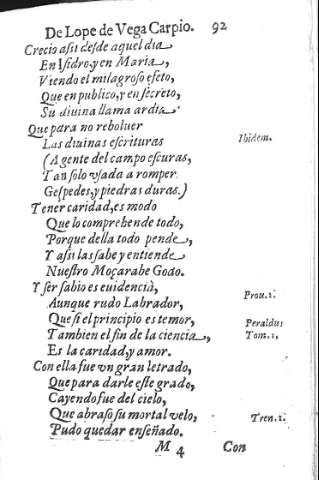 De Lope de Vega Carpio. 92
Crecio assi desde aquel dia
En Isidro, y en Maria,
Viendo el milagroso efeto,
Que en publico, y en secreto,
Su diuina llama ardia.
Que para no reboluer
Las diuinas escrituras Ibidem.
(Agente del campo escuras,
Tan solo vsada a romper
Gespedes, y piedras duras.)
Tener caridad, es modo
Que lo comprehende todo,
Porque della todo pende,
Y assi las sabe y entiende
Nuestro Moçarabe Godo.
Y ser sabio es euidencia,
Aunque rudo Labrador, Prou. 1.
Que si el principio es temor, Peraldus
Tambien el fin de la ciencia, Tom. 1,
Es la caridad, y amor.
Con ella fue vn gran letrado,
Que para darle este grado,
Cayendo fue del cielo,
Que abraso su mortal velo, Tren. 1.
Pudo quedar enseñado.
M 4 Con